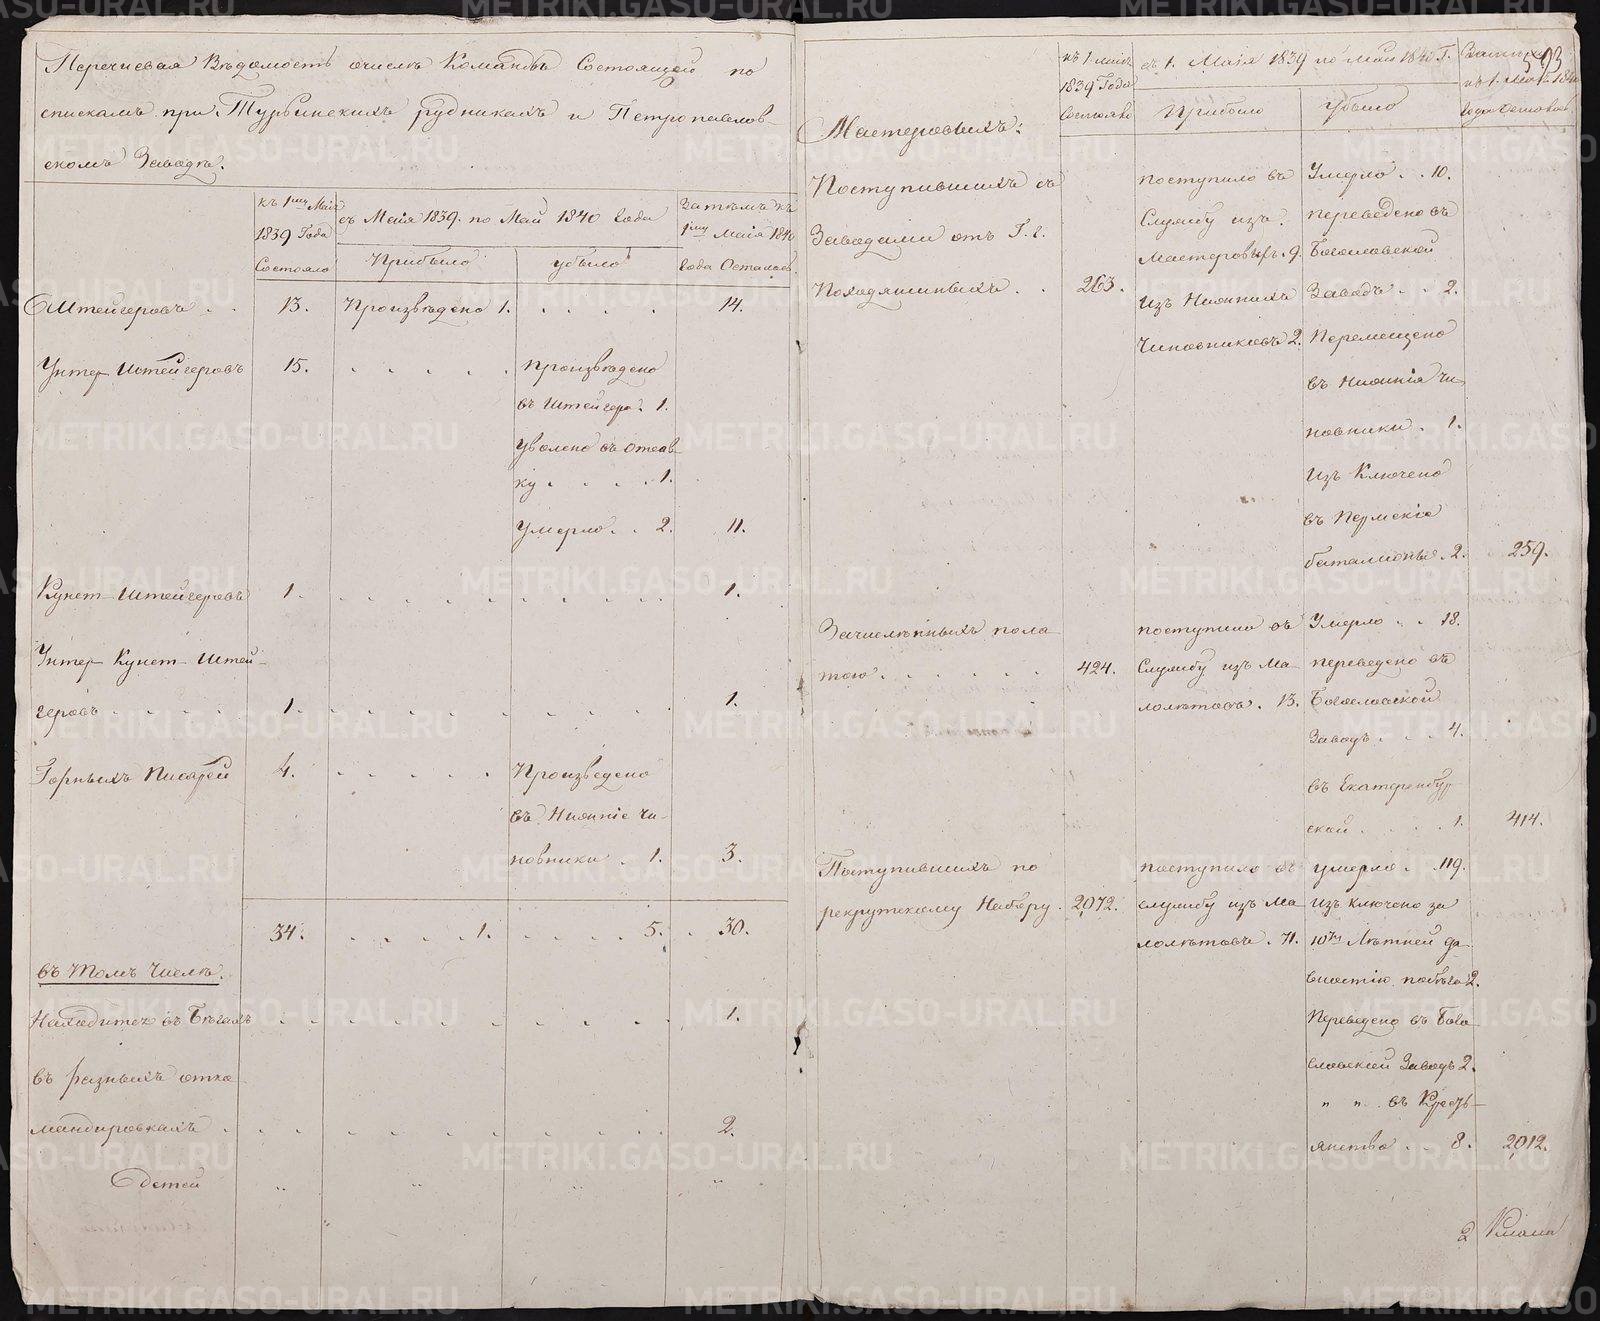 Перечневая Вѣдомость очислѣ Командъ Состоящей по
спискамъ при Турьинскихъ рудникахъ и Петропавлов-
скомъ Заводѣ.
къ 1му Маія 1839 Года Состояло
съ Маія 1839. по Маій 1840 года
Прибыло
убыло
Затѣмъ къ 1му Маія 1840 года Осталось
Штейгеровъ . . 13. Произвѣдено 1. . . . . 14.
Унтер Штейгеровъ 15. . . . . . произвѣдено
въ Штейгера. 1.
Уволено въ отстав-
ку . . . . 1.
Умерло . . 2. 11.
Кунст-Штейгеровъ 1. . . . . . . . . . . 1.
Унтер-Кунст-Штей-
геровъ . . . . . 1. . . . . . . . . . 1.
Горныхъ Писарей 4. . . . . . Произведено
въ Нижніе Чи-
новники . 1. 3.
34. . . . . 1. . . . . 5. . 30.
въ Томъ Числѣ.
Находится въ Бѣгахъ . . . . . . . . . . 1.
въ разныхъ отко
мандировкахъ . . . . . . . . . . 2.
Одетей " " " "
593
къ 1. маія 1839 Года Состояло
съ 1. Маія 1839 по Маій 1840 Г.
Прибыло
убыло
Затѣмъ къ 1. Маія 1840 года Осталось
Мастеровыхъ:
Поступившихъ съ
Заводами отъ Г. г.
Походяшиныхъ . . 263.
поступило въ
Службу изъ
Мастеровыхъ. 9.
Изъ Нижнихъ
Чиновниковъ 2.
Умерло . . 10.
переведено въ
Богословской
Заводъ . . 2.
Перемещено
въ Нижнія чи-
новники . 1.
Изъ Ключено
въ Пермскіе
баталионы . 2. 259.
Зачисленныхъ пола
тою . . . . . . 424.
поступило въ
Службу изъ Ма-
лолѣтовъ . 13.
Умерло . . 18.
переведено въ
Богословской
Заводъ . . . 4.
въ Екатеренбур-
ской . . . . 1. 414.
Поступившихъ по
рекрутскому Набору . 2,072.
поступило въ
службу изъ Ма
лолѣтовъ . 71.
умерло . . 119.
Изъ ключено за
10ти Лѣтней да-
вностію побѣга 2.
Переведено въ Бого-
словскій Заводъ 2.
" " въ Кресть-
янство . . 8. 2,012.
2